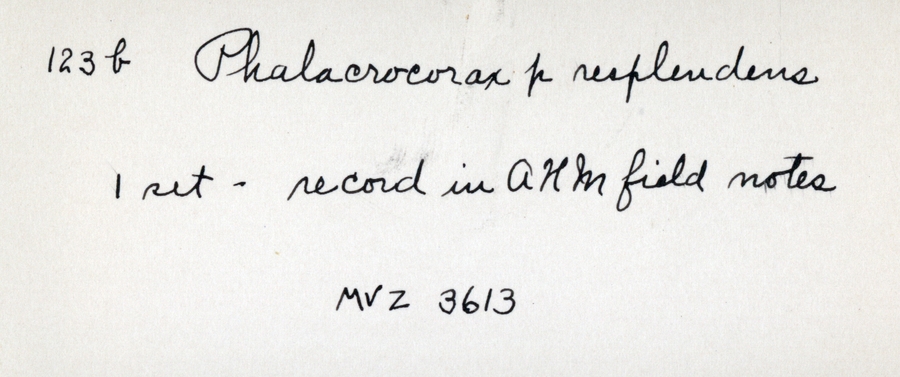 123b Phalacrocorax p resplendens
1 set - record in AHM field notes
MVZ 3613